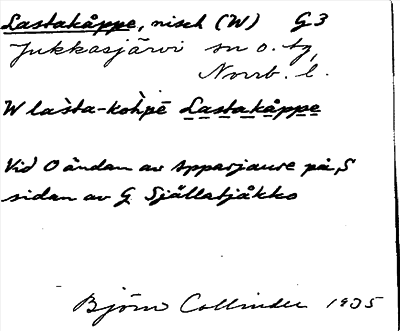 Lastakåppe, nisch (W) G3
Jukkasjärvi sn o. tg,
Norrb. l.
W lašta-kohpē Lastakåppe
Vid O ändan av Apparjaure på S
sidan av G Själlatjåkko
Björn Collinder 1935